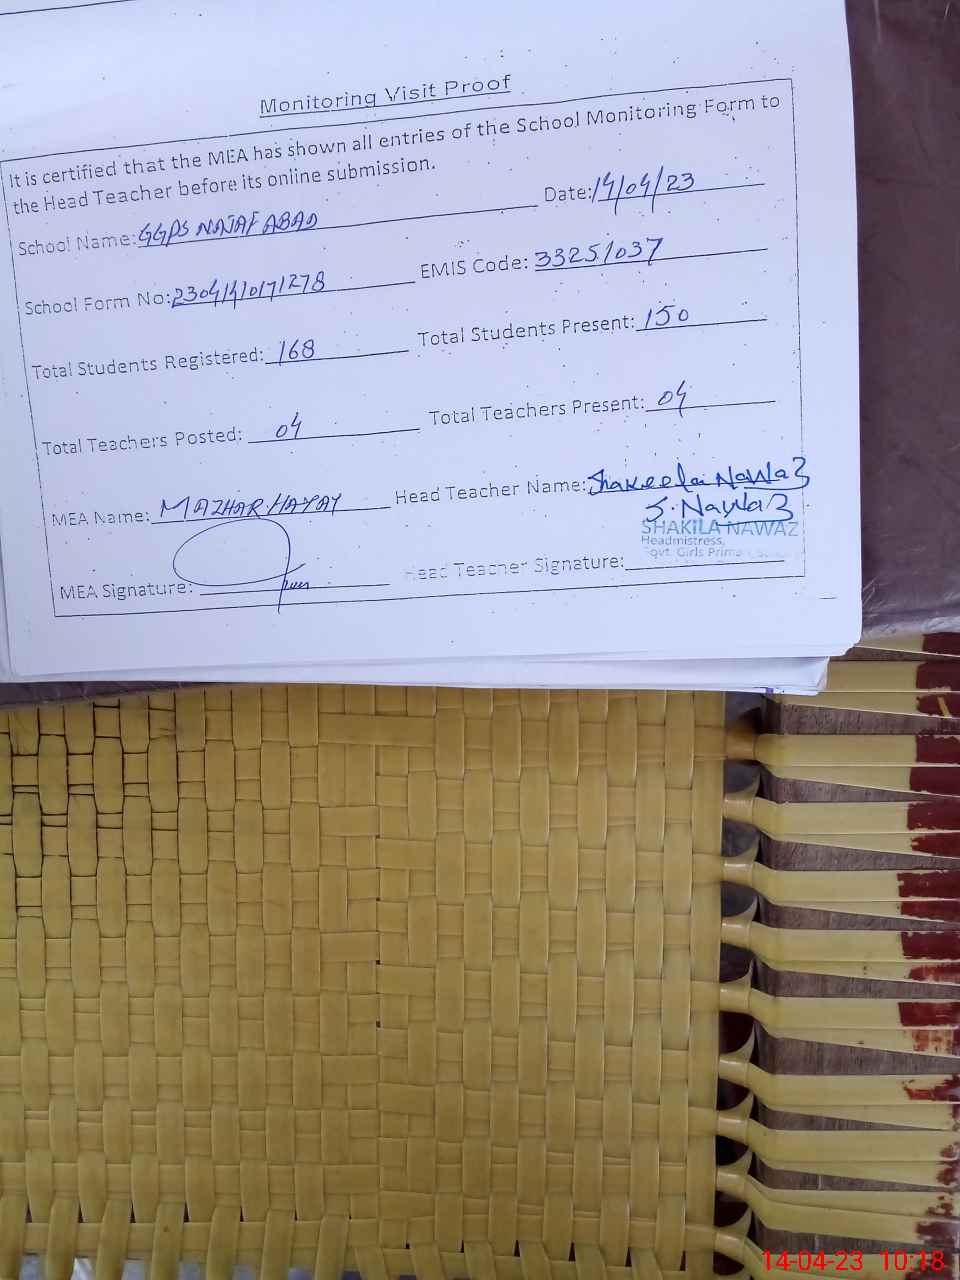 Monitoring Visit Proof
It is certified that the MEA has shown all entries of the School Monitoring Form to
the Head Teacher before its online submission.
School Name: GGPS NAJAF ABAD Date: 14/04/23
School Form No: 23041410171278 EMIS Code: 33251037
Total Students Registered: 168 Total Students Present: 150
Total Teachers Posted: 04 Total Teachers Present: 04
MEA Name: MAZHAR HAYAT Head Teacher Name: Shakeela Nawaz
S. Nawaz
SHAKILA NAWAZ
Headmistress,
Govt. Girls Primary
MEA Signature: Head Teacher Signature:
14-04-23 10:18